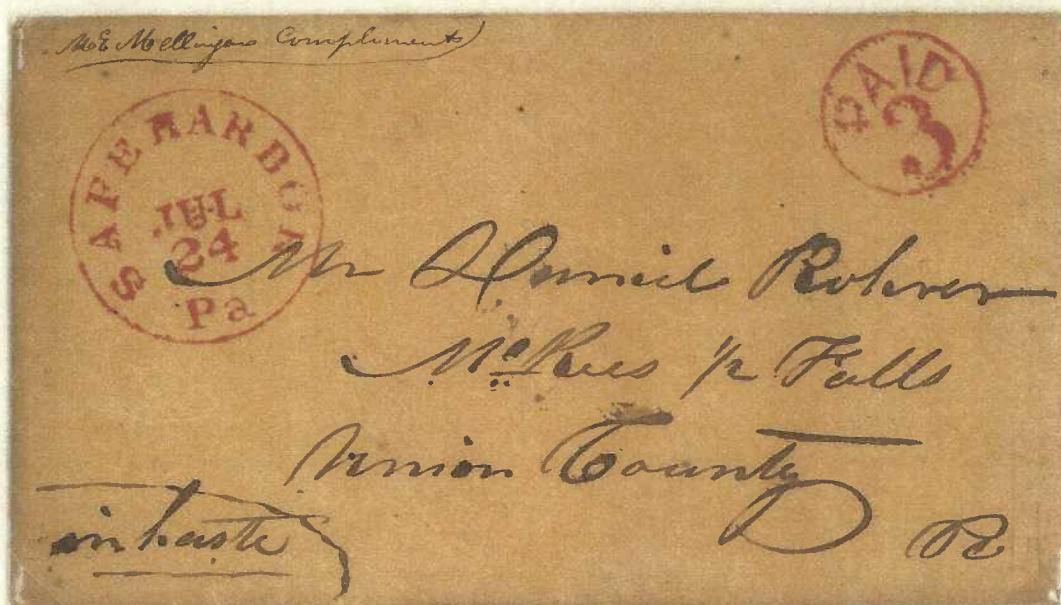 M E Mellingers Compliments
PAID
3
SAFE HARBOR
JUL
24
Pa
Mr Daniel Rohrer
McKees 1/2 Falls
Union County
Pa
in haste